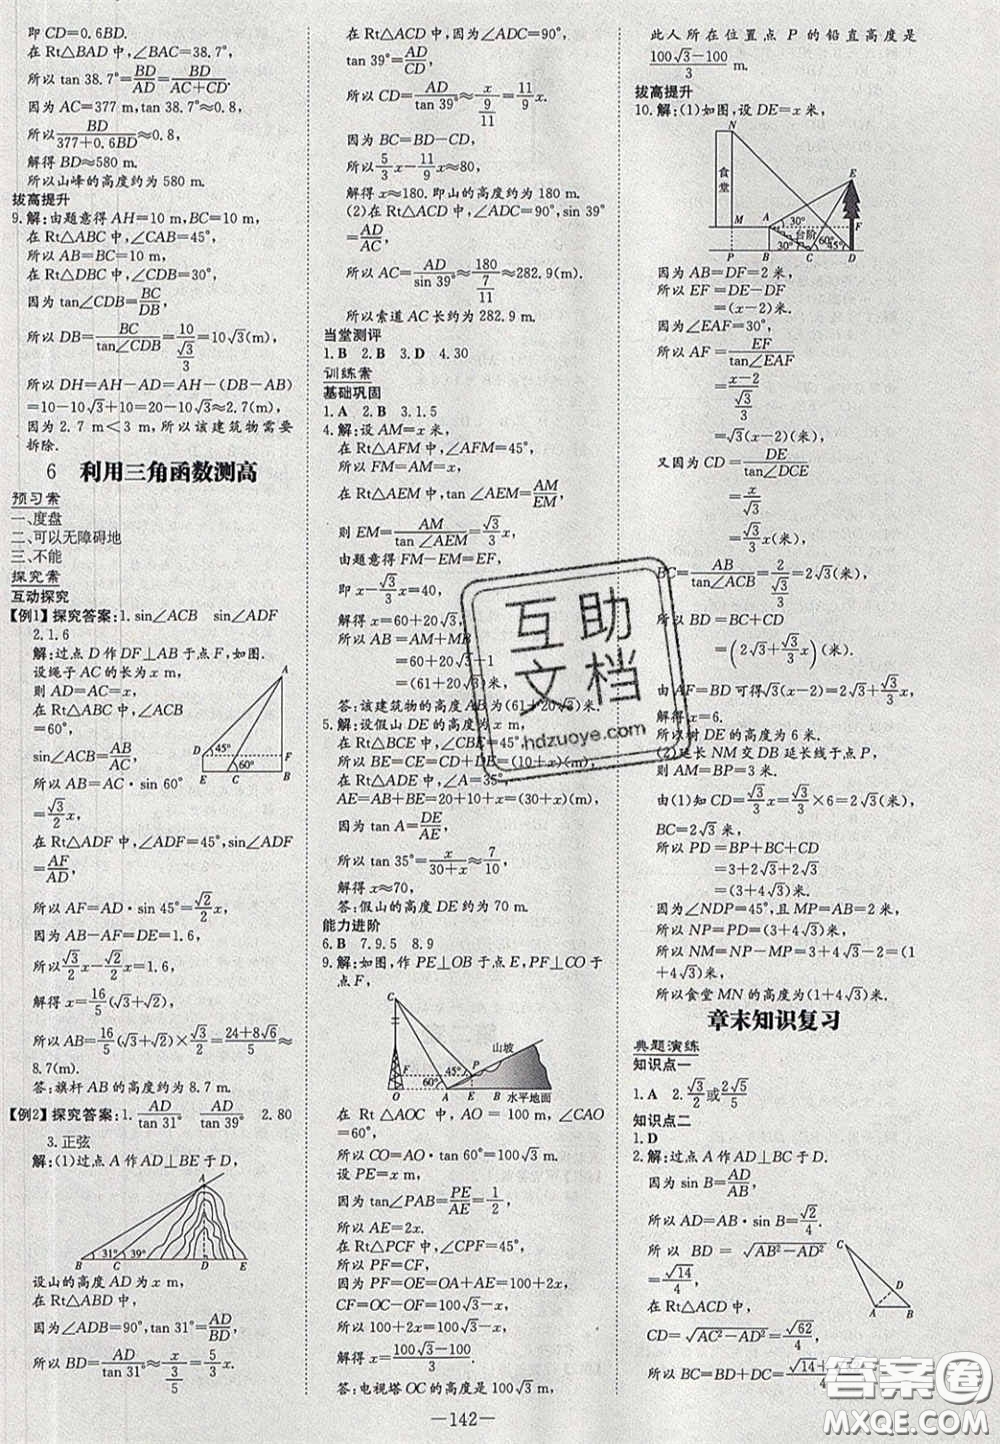 即 CD=0.6BD.
在 Rt△BAD 中,∠BAC=38.7°,
所以 tan 38.7°=BD/AD=BD/(AC+CD).
因为 AC=377 m,tan 38.7°≈0.8,
所以 BD/(377+0.6BD)≈0.8,
解得 BD≈580 m.
所以山峰的高度约为 580 m.
拔高提升
9.解:由题意得 AH=10 m,BC=10 m,
在 Rt△ABC 中,∠CAB=45°,
所以 AB=BC=10 m,
在 Rt△DBC 中,∠CDB=30°,
因为 tan∠CDB=BC/DB,
所以 DB=BC/tan∠CDB=10/(√3/3)=10√3(m).
所以 DH=AH-AD=AH-(DB-AB)
=10-10√3+10=20-10√3≈2.7(m).
因为 2.7 m<3 m,所以该建筑物需要
拆除.
6 利用三角函数测高
预习案
一、度盘
二、可以无障碍地
三、不能
探究案
互动探究
【例1】探究答案:1.sin∠ACB sin∠ADF
2.1.6
解:过点 D 作 DF⊥AB 于点 F,如图.
设绳子 AC 的长为 x m,
则 AD=AC=x,
在 Rt△ABC 中,∠ACB
=60°,
sin∠ACB=AB/AC,
所以 AB=AC·sin 60°
=√3/2x,
A
D 45° F
60°
E C B
在 Rt△ADF 中,∠ADF=45°,sin∠ADF
=AF/AD,
所以 AF=AD·sin 45°=√2/2x,
因为 AB-AF=DE=1.6,
所以√3/2x-√2/2x=1.6,
解得 x=16/5(√3+√2),
所以 AB=16/5(√3+√2)×√3/2=(24+8√6)/5≈
8.7(m).
答:旗杆 AB 的高度约为 8.7 m.
【例2】探究答案:1.AD/tan 31° AD/tan 39° 2.80
3.正弦
解:(1)过点 A 作 AD⊥BE 于 D,
A
31° 39°
B C D E
设山的高度 AD 为 x m,
在 Rt△ABD 中,
因为∠ADB=90°,tan 31°=AD/BD,
所以 BD=AD/tan 31°≈x/(3/5)=5/3x,
在 Rt△ACD 中,∠ADC=90°,
tan 39°=AD/CD,
所以 CD=AD/tan 39°≈x/(9/11)=11/9x,
因为 BC=BD-CD,
所以 5/3x-11/9x≈80,
解得 x≈180.即山的高度约为 180 m.
(2)在 Rt△ACD 中,∠ADC=90°,sin 39°
=AD/AC,
所以 AC=AD/sin 39°≈180/(7/11)≈282.9(m).
所以索道 AC 长约为 282.9 m.
当堂测评
1.B 2.B 3.D 4.30
训练案
基础巩固
1.A 2.B 3.1.5
4.解:设 AM=x 米,
在 Rt△AFM 中,∠AFM=45°,
所以 FM=AM=x,
在 Rt△AEM 中,tan∠AEM=AM/EM,
则 EM=AM/tan∠AEM=√3/3x,
由题意得 FM-EM=EF,
即 x-√3/3x=40,
解得 x=60+20√3,
所以 AB=AM+MB
=60+20√3+1
=(61+20√3)米.
答:该建筑物的高度 AB 为(61+20√3)米.
5.解:设假山 DE 的高度为 x m,
在 Rt△BCE 中,∠CBE=45°,
所以 BE=CE=CD+DE=(10+x)(m).
在 Rt△ADE 中,∠A=35°,
AE=AB+BE=20+10+x=(30+x)(m).
因为 tan A=DE/AE,
所以 tan 35°=x/(30+x)≈7/10,
解得 x≈70,
答:假山的高度 DE 约为 70 m.
能力进阶
6.B 7.9.5 8.9
9.解:如图,作 PE⊥OB 于点 E,PF⊥CO 于
点 F,
C
山坡
F 45° P
60°
O A E B 水平地面
在 Rt△AOC 中,AO=100 m,∠CAO
=60°,
所以 CO=AO·tan 60°=100√3(m).
设 PE=x m,
因为 tan∠PAB=PE/AE=1/2,
所以 AE=2x.
在 Rt△PCF 中,∠CPF=45°,
所以 PF=CF,
因为 PF=OE=OA+AE=100+2x,
CF=OC-OF=100√3-x,
所以 100+2x=100√3-x,
解得 x=(100√3-100)/3.
答:电视塔 OC 的高度是 100√3 m,
此人所在位置点 P 的铅直高度是
(100√3-100)/3 m.
拔高提升
10.解:(1)如图,设 DE=x 米,
N
食堂
E
M A 30° F
台阶
30° 60° 45°
P B C D
因为 AB=DF=2 米,
所以 EF=DE-DF
=(x-2)米.
因为∠EAF=30°,
所以 AF=EF/tan∠EAF
=(x-2)/(√3/3)
=√3(x-2)米.
又因为 CD=DE/tan∠DCE
=x/√3
=√3/3x(米),
BC=AB/tan∠ACB=2/(√3/3)=2√3(米),
所以 BD=BC+CD
=(2√3+√3/3x)米.
由 AF=BD 可得√3(x-2)=2√3+√3/3x,
解得 x=6.
所以树 DE 的高度为 6 米.
(2)延长 NM 交 DB 延长线于点 P,
则 AM=BP=3 米.
由(1)知 CD=√3/3x=√3/3×6=2√3(米),
BC=2√3 米,
所以 PD=BP+BC+CD
=3+2√3+2√3
=(3+4√3)米.
因为∠NDP=45°,且 MP=AB=2 米,
所以 NP=PD=(3+4√3)米,
所以 NM=NP-MP=3+4√3-2=(1
+4√3)米,
所以食堂 MN 的高度为(1+4√3)米.
章末知识复习
典题演练
知识点一
1.A 2.√2/2或2√5/5
知识点二
1.D
2.解:过点 A 作 AD⊥BC 于 D,
因为 sin B=AD/AB,
所以 AD=AB·sin B=√2/4.
所以 BD=√(AB²-AD²)
=√14/4,
C
D
A B
在 Rt△ACD 中,
CD=√(AC²-AD²)=√62/4,
所以 BC=BD+DC=
—142—
互助
文档
hdzuoye.com
答案圈
MXQE.COM